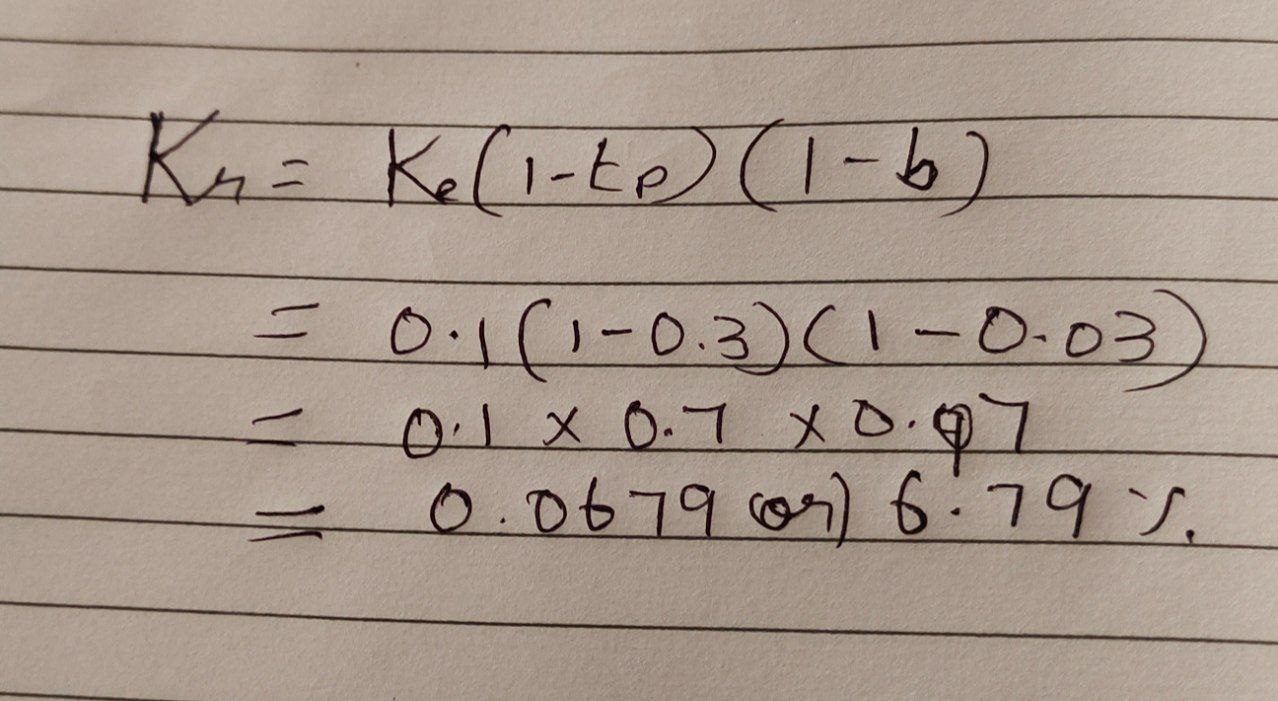 Kr = Ke(1-tp)(1-b)
= 0.1(1-0.3)(1-0.03)
= 0.1 x 0.7 x 0.97
= 0.0679 (or) 6.79 %.